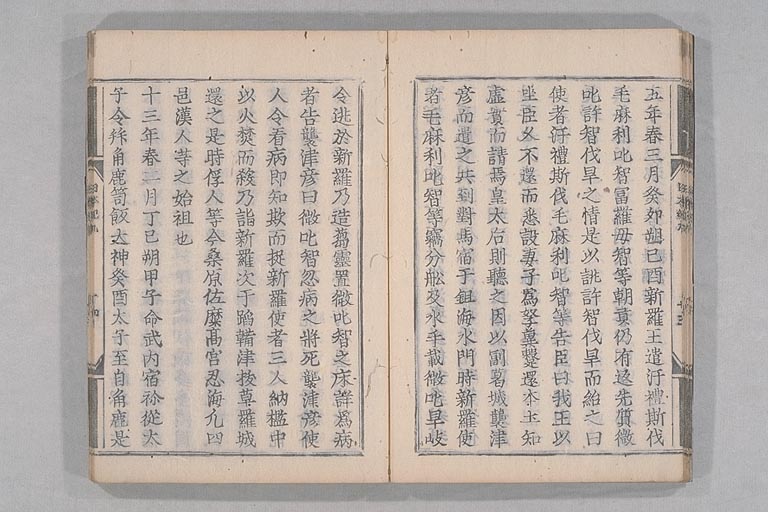 五年春三月癸卯朔己酉新羅王遣汙禮斯伐
毛麻利叱智冨羅母智等朝貢仍有返先質微
叱許智伐旱之情是以誂許智伐旱而紿之曰
使者汙禮斯伐毛麻利叱智等告臣曰我王以
坐臣久不還而悉没妻子為孥冀蹔還本土知
虛實而請焉皇太后則聽之因以副葛城襲津
彦而遣之共到對馬宿于鉏海水門時新羅使
者毛麻利叱智等竊分舩及水手載微叱旱岐
令逃於新羅乃造蒭靈置微叱智之床詳為病
者告襲津彦曰微叱智忽病之將死襲津彦使
人令看病即知欺而捉新羅使者三人納檻中
以火焚而殺乃詣新羅次于蹈鞴津抜草羅城
還之是時俘人等今桑原佐糜高宮忍海凡四
邑漢人等之始祖也
十三年春二月丁巳朔甲子命武内宿祢從太
子令拜角鹿笥飯大神癸酉太子至自角鹿是